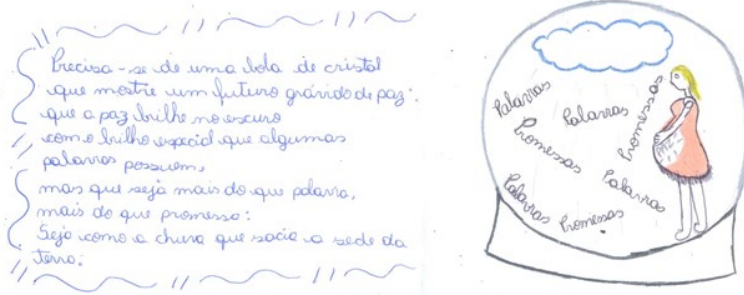 Precisa-se de uma bola de cristal
que mostre um futuro grávido de paz:
que a paz brilhe no escuro
com o brilho especial que algumas
palavras possuem,
mas que seja mais do que palavra,
mais do que promessa:
Seja como a chuva que sacia a sede da
terra.
Palavras
Palavras
Promessas
Promessas
Palavras
Palavras
Promessas
PAZ